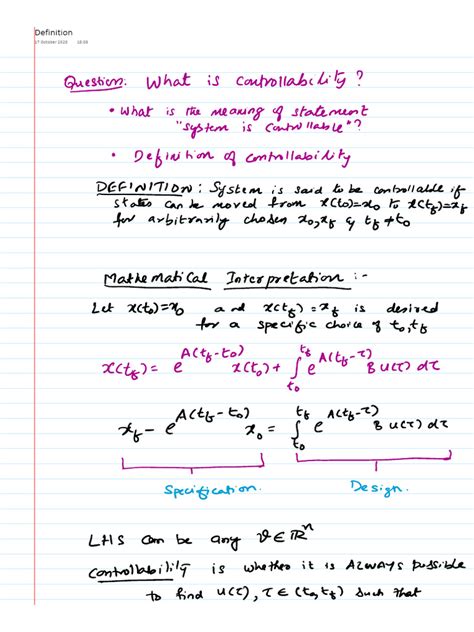 Definition
17 October 2020 18:09
Question: What is controllability?
• What is the meaning of statement
"system is controllable"?
• Definition of controllability
DEFINITION: System is said to be controllable if
states can be moved from x(t0)=x0 to x(tf)=xf
for arbitrarily chosen x0,xf & tf≠t0
Mathematical Interpretation :-
Let x(t0)=x0 and x(tf)=xf is desired
for a specific choice of t0,tf
x(tf) = e^{A(tf-t0)} x(t0) + ∫_{t0}^{tf} e^{A(tf-τ)} B u(τ) dτ
xf - e^{A(tf-t0)} x0 = ∫_{t0}^{tf} e^{A(tf-τ)} B u(τ) dτ
Specification. Design.
LHS can be any v ∈ ℝ^n
Controllability is whether it is ALWAYS possible
to find u(τ), τ ∈ (t0, tf) such that